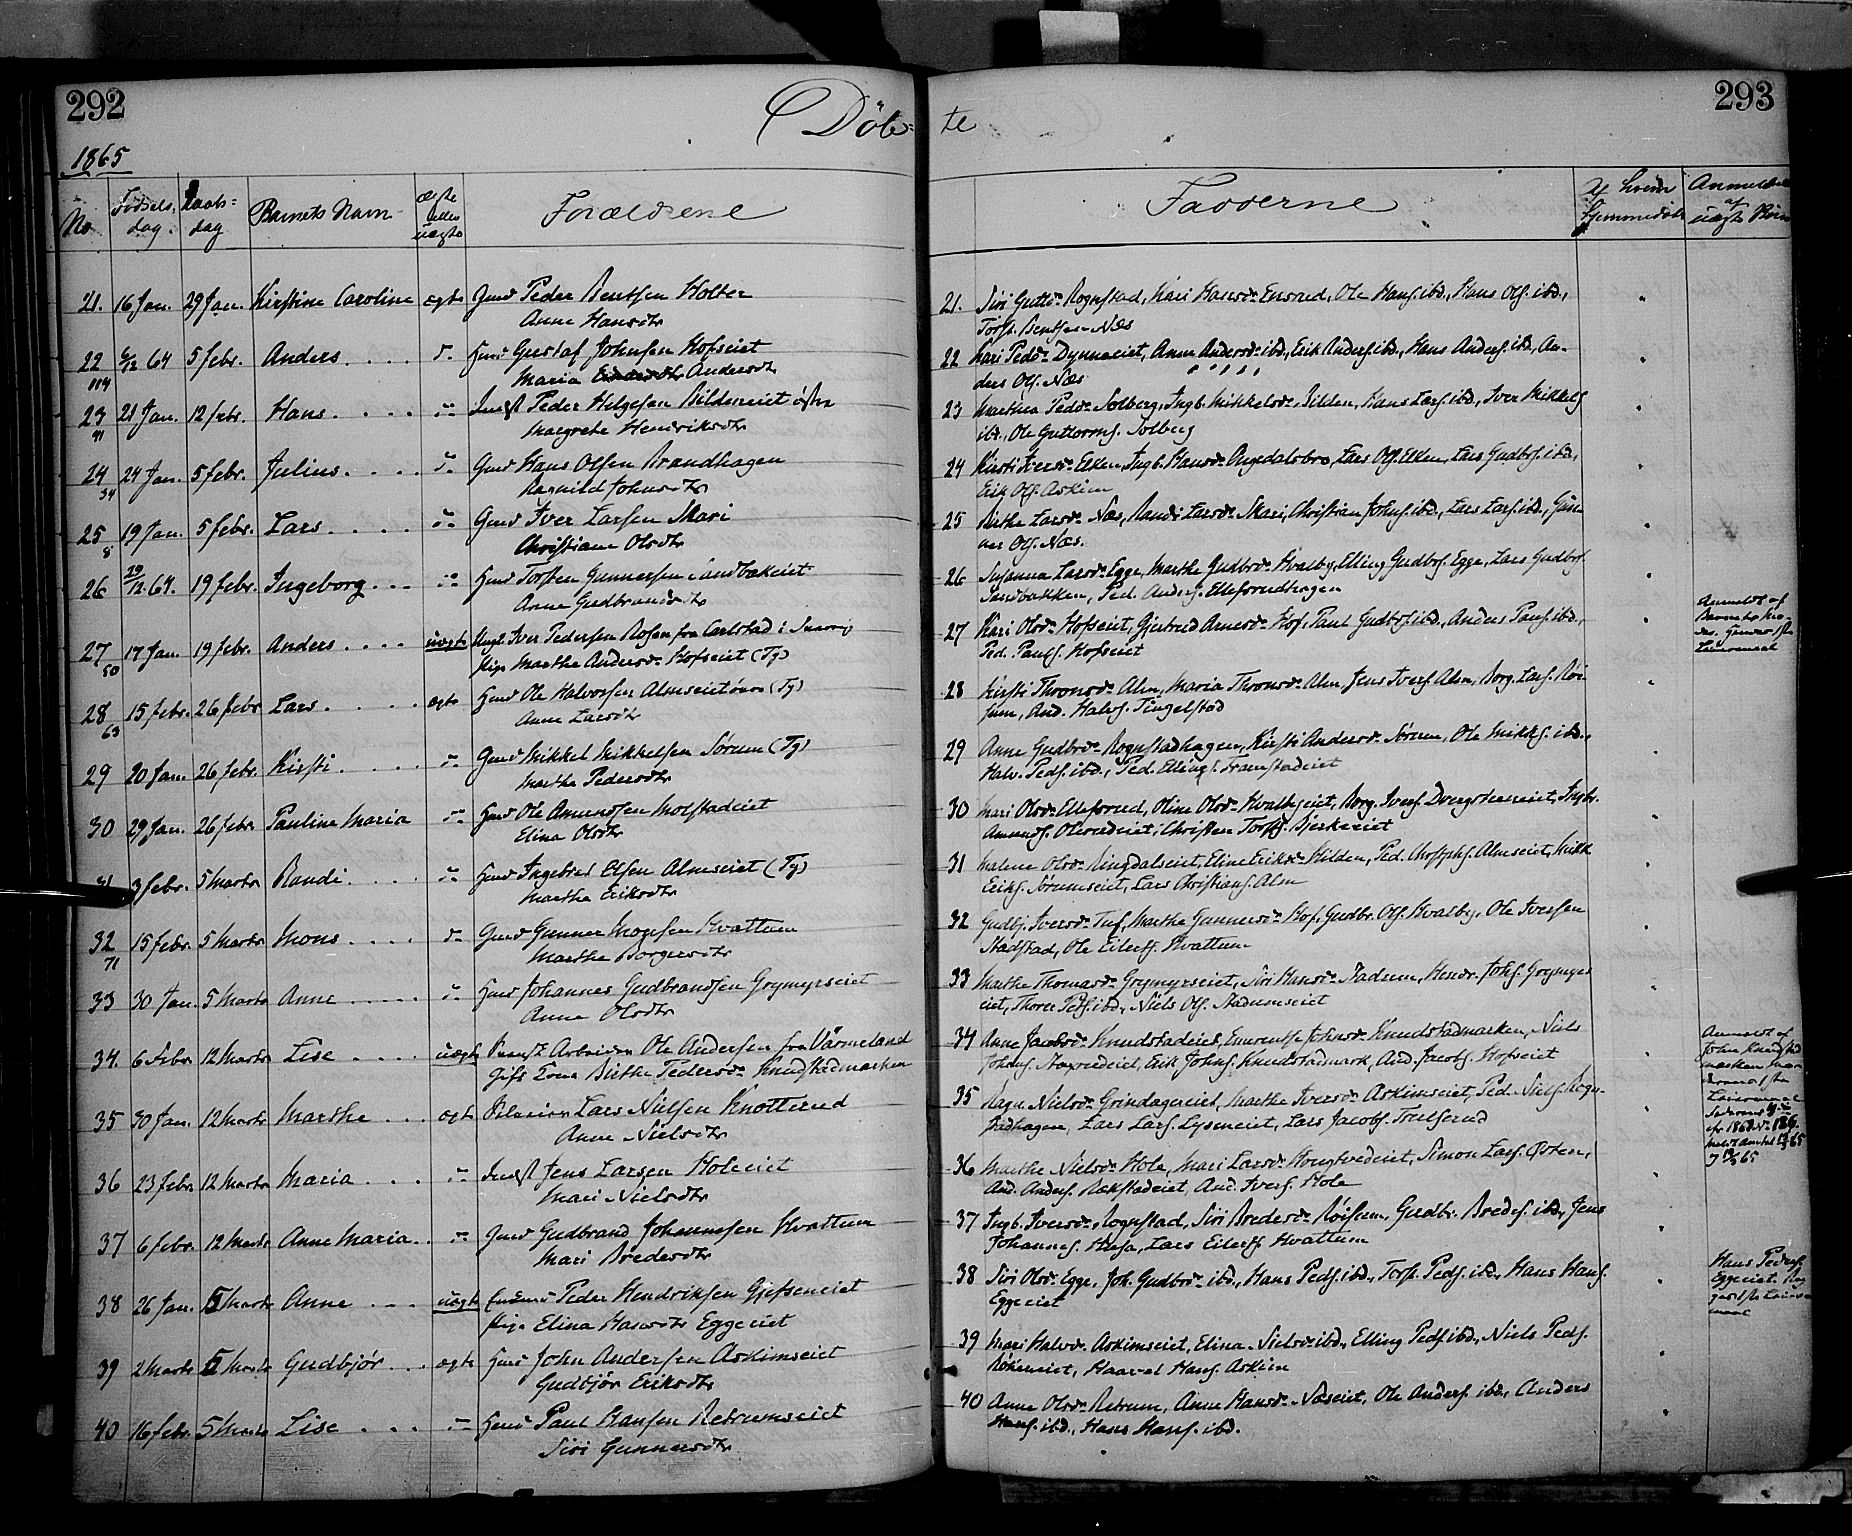 292
Döb-
1865
No
Fødsels dag
Daabs- dag
Barnets Navn
ægte eller uægte
Forældrene
21. 16 Jan. 29 Jan. Kirstine Caroline ægte Gmd Peder Bentsen Holter
Anne Hansdtr
22 6/12 64 5 febr. Anders Gustaf Johnsen Hofseiet
Maria Andersdtr
114
23 21 Jan. 12 febr. Hans Indst Peder Helgesen Bildeneiet østre
Margrete Henriksdtr
24 24 Jan. 5 febr. Julius Gmd Hans Olsen Brandhagen
34 Ragnild Johnsdtr
25 19 Jan. 5 febr. Lars Gmd Iver Larsen Mari
8 Christiane Olsdtr
26 29/12 64. 19 febr. Ingeborg Hmd Torsten Gunnersen Sandbækeiet
Anne Gudbrandsdtr
27 17 Jan. 19 febr. Anders uægte Ungk Iver Pedersen Rosen fra Carlstad i
50 Pige Marthe Andersdr Hofseiet (Tg)
28 15 febr. 26 febr Lars ægte Hmd Ole Halvorsen Almseiet (Tg)
63 Anne Larsdtr
29 20 Jan. 26 febr. Kirsti Gmd Mikkel Mikkelsen Sørum (Tg)
Marthe Pedersdtr
30 29 Jan. 26 febr. Pauline Maria Hmd Ole Amundsen Molstadeiet
Elina Olsdtr
31 3 febr. 5 Marts Randi Hmd Ingebret Olsen Almseiet (Tg)
Marthe Eriksdtr
32 15 febr. 5 Marts Mons Gmd Gunner Mogesen Hvattum
71 Marthe Borgersdtr
33 30 Jan. 5 Marts Anne Hmd Johannes Gudbrandsen Grymyrseiet
Anne Olsdtr
34. 6 Febr. 12 Marts Lise uægte Arbeider Ole Andersen fra Värmeland
Gift Kone Birthe Pedersdr Knudstadmarken
35 30 Jan. 12 Marts Marthe ægte Lars Nielsen Knotterud
Anne Nielsdtr
36 23 febr. 12 Marts Maria Indst Jens Larsen Holeeiet
Mari Nielsdtr
37 6 febr. 12 Marts Anne Maria Gmd Gudbrand Johannesen Hvattum
Mari Bredesdtr
38 26 Jan. 5 Marts Anne uægte Peder Hendriksen Gjefseneiet
Pige Elina Hansdtr Eggeeiet
39 2 Marts 5 Marts Gudbjør ægte Hmd John Andersen Askimseiet
Gudbjør Eriksdtr
40 16 febr. 5 Marts Lise Hmd Paul Hansen Retrumseiet
Siri Gunnersdtr
293
te
Fadderne
Af hvem hjemmedøbt
Anmeldelse af uægte Børn
21. Siri Guttdr Rognstad, Kari Hansdr Ensrud, Ole Hans. ibd., Hans Ols. ibd.,
Torst. Bentsen Næs
22 Kari Pedsdr Dynnaeiet, Anne Andersdr ibd, Erik Anders. ibd., Hans Anders. ibd, An-
ders Ols. Næs
23 Marthea Pedsdr Solberg, Ingb. Mikkelsdr Bilden, Hans Lars. ibd., Iver Mikkels
ibd., Ole Guttorms. Solberg
24 Kirsti Iversdr Elken, Ingb. Hansdr Ongdalsbro, Lars Ols. Elken, Lars Gudbrs. ibd.,
Erik Ols. Askim
25 Birthe Larsdr Næs, Randi Larsdr Mari, Christian Johns. ibd., Lars Lars. ibd., Gun-
ner Ols. Næs.
26 Susanna Larsdr Egge, Marthe Gudbrdr Hvalby, Elling Gudbrs. Egge, Lars Gudbrs.
Sandbakken, Ped. Anders. Ellefsrudhagen
27 Kari Olsdr Hofseiet, Gjertrud Arnesdr Hof, Paul Gudbrs. ibd., Anders Pauls. ibd.,
Ped. Pauls. Hofseiet
Anmeldt af
Barnets Mo-
28 Kirsti Thronsdr Alm, Maria Thronsdr Alm, Jens Ivers. Alm, Borg. Lars. Røi-
sum, And. Halvs. Tingelstad
29 Anne Gudbrdr Rognstadhagen, Kirsti Andersdr Sørum, Ole Mikks. ibd.,
Halv. Peds. ibd., Ped. Ellings. Framstadeiet
30 Mari Olsdr Ellefsrud, Oline Olsdr Hvalbyeiet, Borg. Ivers. Dvergsteneiet, Ingbr.
Amunds. Olsrudeiet, Christen Torsts. Bjerkeeiet
31 Malene Olsdr Ringdalseiet, Eline Eriksdr Hilden, Ped. Almseiet, Mikk
Eriks. Sørumseiet, Lars Christians. Alm
32 Gudbj. Iversdr Tuf, Marthe Gunnersdr Hof, Gudbr. Ols. Hvalby, Ole Iversen
Stadstad, Ole Eilerts. Hvattum
33 Marthe Thomasdr Grymyrseiet, Siri Hansdr Stadum, Hendr. Johs. Grymyrs
eiet, Thorer Peds. ibd., Niels Ols. Stadumseiet
34 Anne Jacobsdr Knudstadeiet, Emerentse Johnsdr Knudstadmarken, Niels
Johns. Erik Johns. Knudstadmark, And. Jacobs. Hofseiet
Anmeldt af
35 Ragn. Nielsdr Grindageneiet, Marthe Iversdr Askimseiet, Ped. Niels. Rogn-
stadhagen, Lars Lars. Lyseneiet, Lars Jacobs. Trulserud
36 Marthe Nielsdr Hole, Mari Larsdr Hougtvedeiet, Simon Lars. Østen,
And. Anders. Rækstadeiet, And. Ivers. Hole
37 Ingb. Iversdr Rognstad, Siri Bredesdr Røisum, Gudbr. Bredes. ibd., Jens
Johannes. Lars Eilerts. Hvattum
38 Siri Olsdr Egge, Joh. Gudbrdr ibd., Hans Peds. ibd., Torst. Peds. ibd., Hans Hans.
Eggeeiet
Hans Peders.
Eggeeiet
39 Mari Halvdr Askimseiet, Elina Nielsdr ibd., Elling Peds. ibd., Niels Peds.
Haavel Hans. Askim
40 Anne Olsdr Retrum, Anne Hansdr Næseiet, Ole Anders. ibd., Anders
Hans. ibd., Hans Hans. ibd.